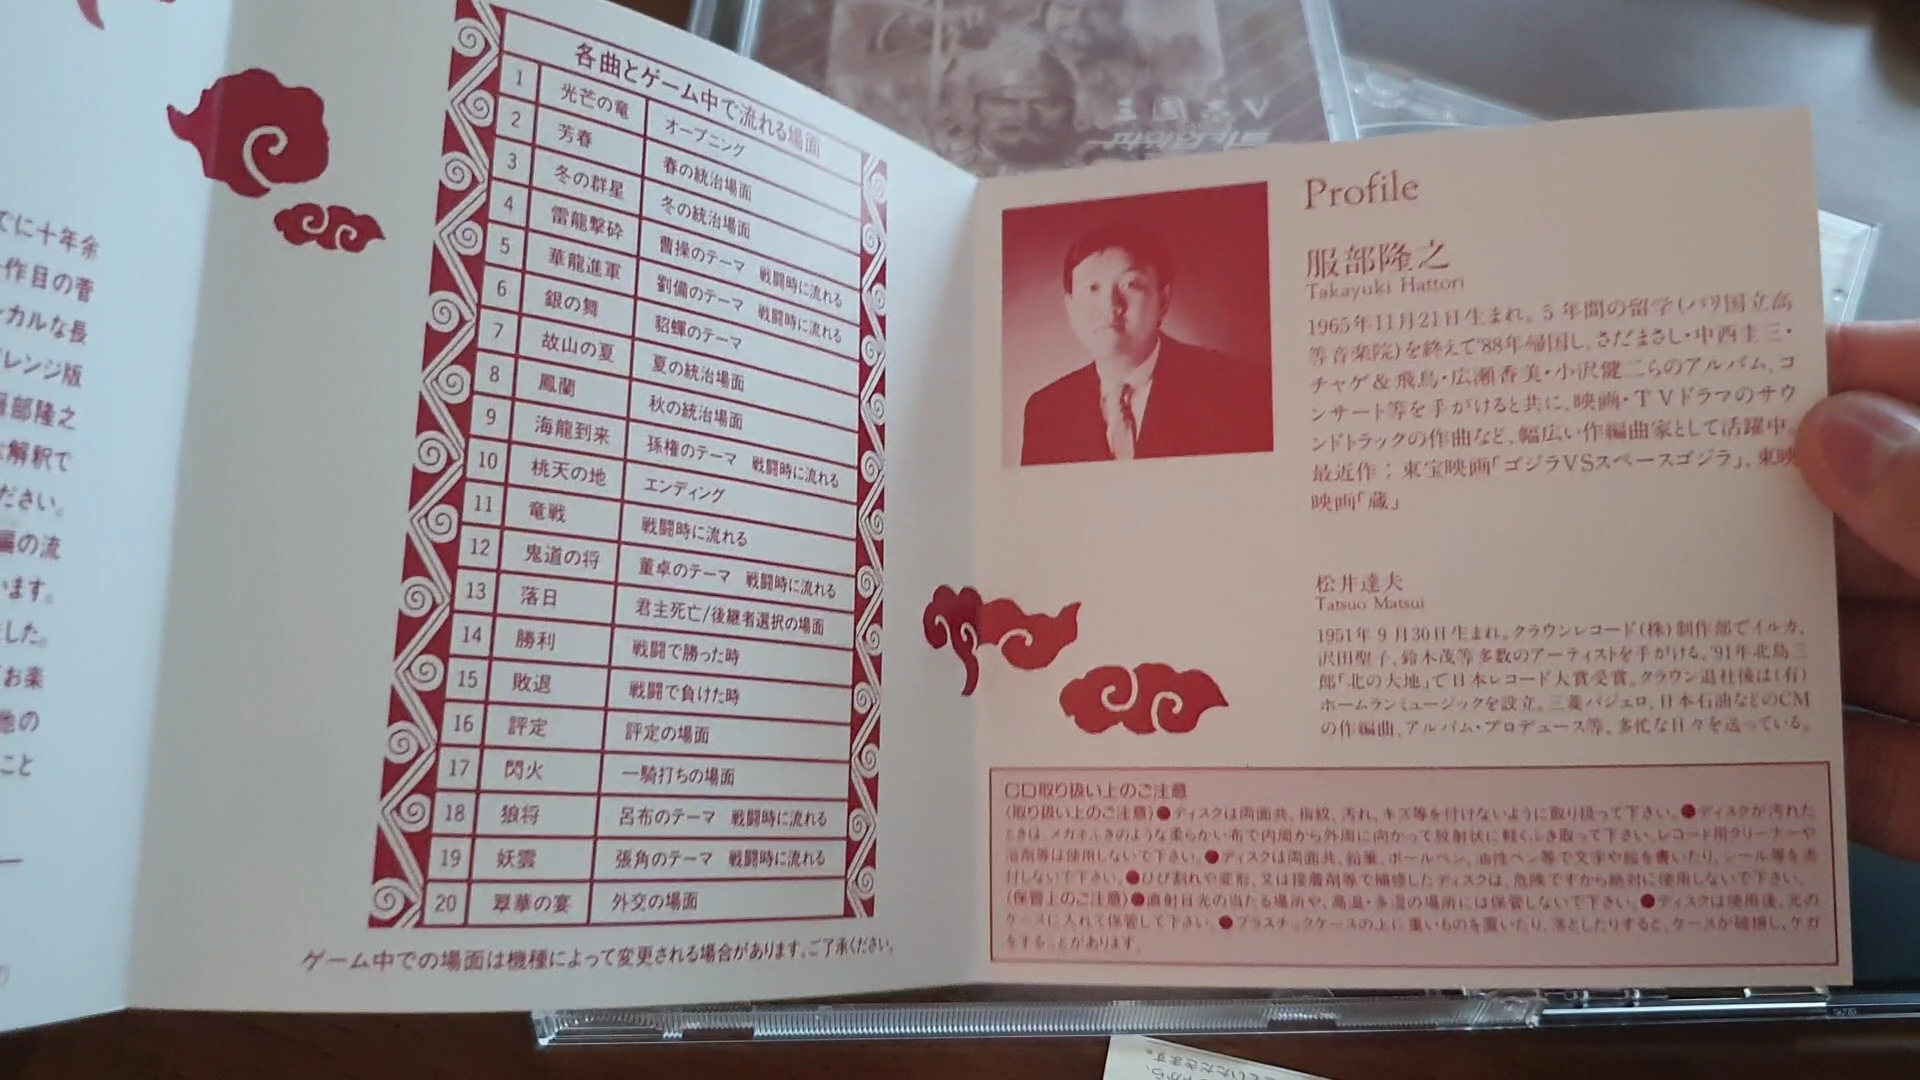 でに十年余
作目の菅
カルな長
レンジ版
服部隆之
解釈で
ださい。
編の流
います。
した。
お楽
他の
こと
各曲とゲーム中で流れる場面
1 光芒の竜 オープニング
2 芳春 春の統治場面
3 冬の群星 冬の統治場面
4 雷龍撃砕 曹操のテーマ 戦闘時に流れる
5 華龍進軍 劉備のテーマ 戦闘時に流れる
6 銀の舞 貂蟬のテーマ
7 故山の夏 夏の統治場面
8 鳳蘭 秋の統治場面
9 海龍到来 孫権のテーマ 戦闘時に流れる
10 桃天の地 エンディング
11 竜戦 戦闘時に流れる
12 鬼道の将 董卓のテーマ 戦闘時に流れる
13 落日 君主死亡/後継者選択の場面
14 勝利 戦闘で勝った時
15 敗退 戦闘で負けた時
16 評定 評定の場面
17 閃火 一騎打ちの場面
18 狼将 呂布のテーマ 戦闘時に流れる
19 妖雲 張角のテーマ 戦闘時に流れる
20 翠華の宴 外交の場面
ゲーム中での場面は機種によって変更される場合があります。ご了承ください。
三国志V
Profile
服部隆之
Takayuki Hattori
1965年11月21日生まれ。5年間の留学(パリ国立高
等音楽院)を終えて'88年帰国し、さだまさし・中西圭三・
チャゲ&飛鳥・広瀬香美・小沢健二らのアルバム、コ
ンサート等を手がけると共に、映画・TVドラマのサウ
ンドトラックの作曲など、幅広い作編曲家として活躍中。
最近作；東宝映画「ゴジラVSスペースゴジラ」、東映
映画「蔵」
松井達夫
Tatsuo Matsui
1951年9月30日生まれ。クラウンレコード(株)制作部でイルカ、
沢田聖子、鈴木茂等多数のアーティストを手がける。'91年北島三
郎「北の大地」で日本レコード大賞受賞。クラウン退社後は(有)
ホームランミュージックを設立。三菱パジェロ、日本石油などのCM
の作編曲、アルバム・プロデュース等、多忙な日々を送っている。
CD取り扱い上のご注意
(取り扱い上のご注意)●ディスクは両面共、指紋、汚れ、キズ等を付けないように取り扱って下さい。●ディスクが汚れた
ときは、メガネふきのような柔らかい布で内周から外周に向かって放射状に軽くふき取って下さい。レコード用クリーナーや
溶剤等は使用しないで下さい。●ディスクは両面共、鉛筆、ボールペン、油性ペン等で文字や絵を書いたり、シール等を添
付しないで下さい。●ひび割れや変形、又は接着剤等で補修したディスクは、危険ですから絶対に使用しないで下さい。
(保管上のご注意)●直射日光の当たる場所や、高温・多湿の場所には保管しないで下さい。●ディスクは使用後、元の
ケースに入れて保管して下さい。●プラスチックケースの上に重いものを置いたり、落としたりすると、ケースが破損し、ケガ
をすることがあります。
ていただきます。